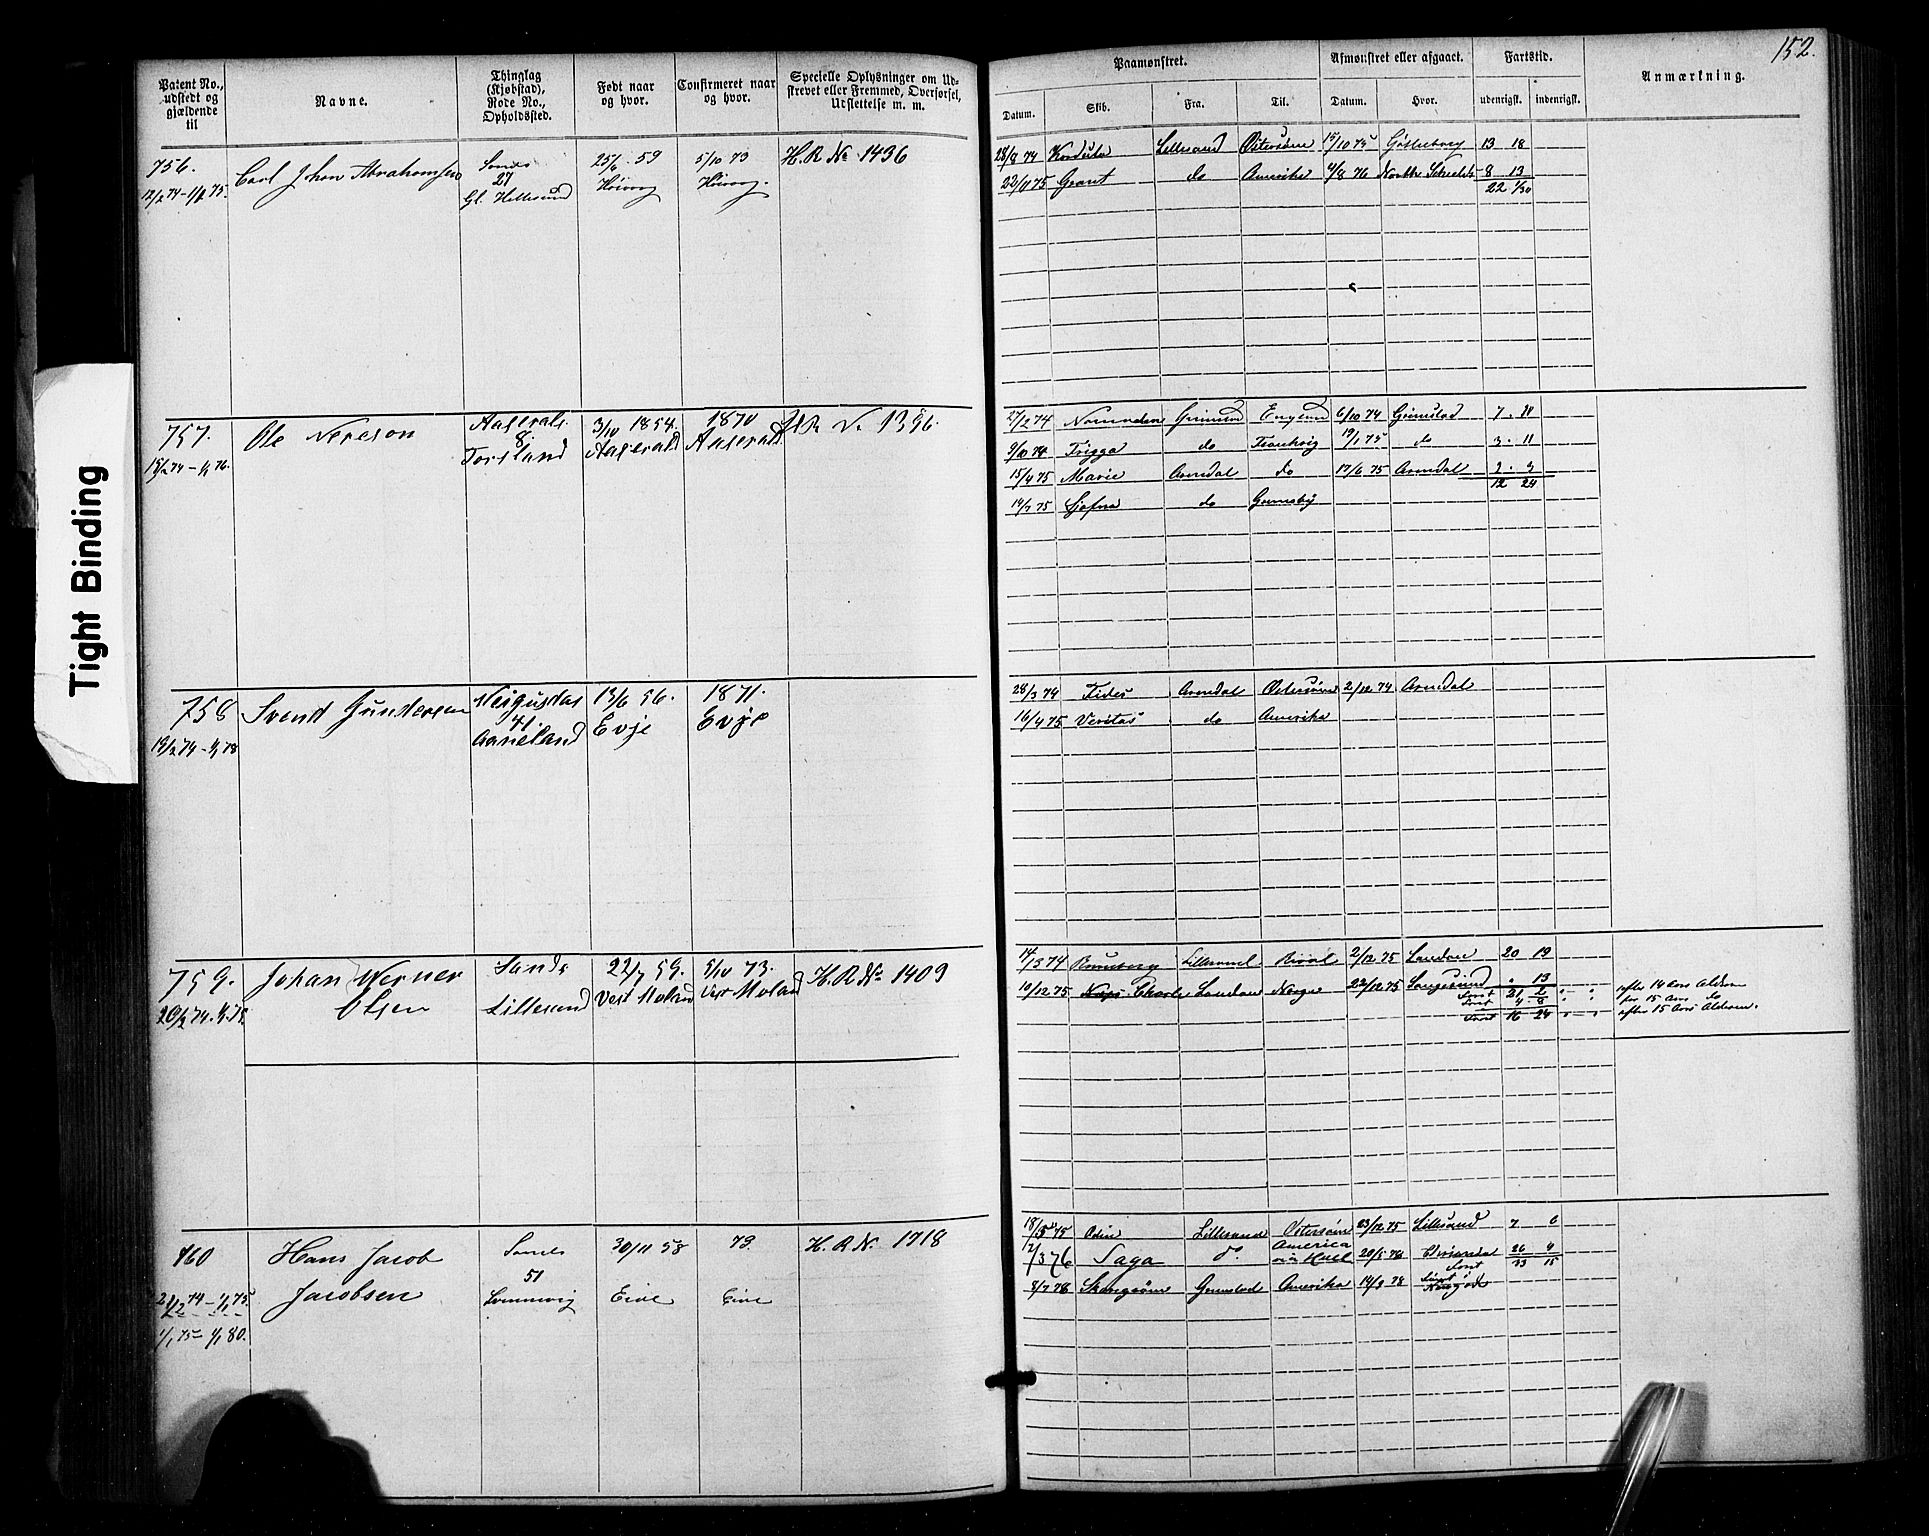 152.
Patent No., udstedt og gjældende til
Navne.
Thinglag (Kjøbstad), Rode No., Opholdssted.
Født naar og hvor.
Confirmeret naar og hvor.
Specielle Oplysninger om Udskrevet eller Fremmed, Overførsel, Udslettelse m. m.
Paamønstret.
Afmønstret eller afgaaet.
Fartstid.
Anmærkning.
Datum. Skib. Fra. Til. Datum. Hvor. udenrigsk. indenrigsk.
Tight Binding
756. Carl Johan Abrahamsen Sands 25/6 59 5/10 73 H. R No 1436
27
12/2 74 - 1/1 75. Gl. Hellesund Høivag Høivag.
28/8 74 Kordula Lillesand Østersøen 15/10 75 Gøtteborg 13 18
22/11 75 Grant do Amerika 4/8 76 North 8 13
22 1/30
757. Ole Nereson Aaserals 3/10 1854. 1870 H R No 1396.
8.
15/2 74 - 1/1 76. Torsland Aaserald Aaserald.
27/2 74 Grimstad England 6/10 74 Grimstad 7. 11
9/10 74 Frigga do 19/1 75 do 3. 11
15/4 75 Marie Arendal do 17/6 75 Arendal 2. 3
12 24
14/7 75 Sjofna do Grimsby
758 Svend Gundersen 13/6 56. 1871.
41
19/2 74 - 1/1 78 Aaneland Evje Evje
28/3 74 Fides Arendal Østersøen 2/12 74 Arendal
16/4 75 Veritas do Amerika
759. Johan Werner Sands 22/7 59. 5/10 73. H. R No 1409
20/2 74. Olsen Lillesand Vest Moland Vest Moland
14/3 74 Lillesand 2/12 75 London 20 19
10/12 75 Charles London Norge 22/12 75 Langesund " 13
Tout 21 2 " " efter 14 Aars Alderen
Tout 4. 8 " " før 15 Aars do
Tout 16 24 " " efter 15 Aars Alderen.
760 Hans Jacob Sands 30/11 58 73. H. R No. 1718
51
21/2 74 - 1/1 75 Jacobsen Eive Eive
1/1 75 - 1/1 80.
18/5 75 Odin Lillesand Østersøen 23/12 75 Lillesand 7 6
12/3 76 Saga do America via Hull 20/5 78 26 9
Tout 33 15
8/7 78 Grimstad Amerika 14/9 78